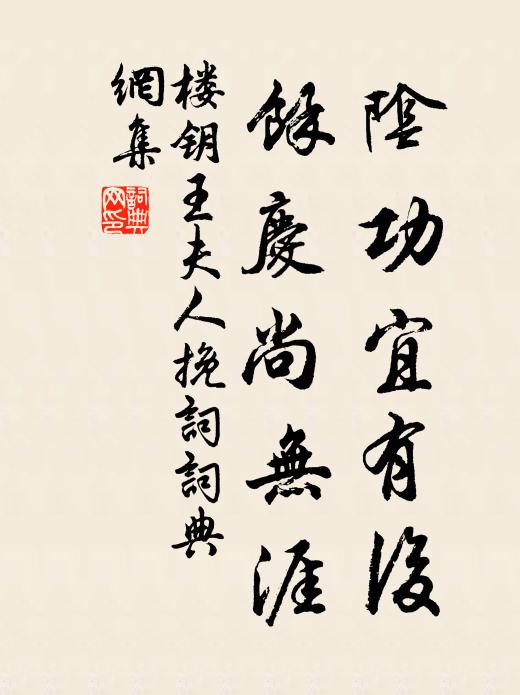 陰功宜有後
餘慶尚無涯
楼钥王夫人挽詞詞典
網集
詞典
网印